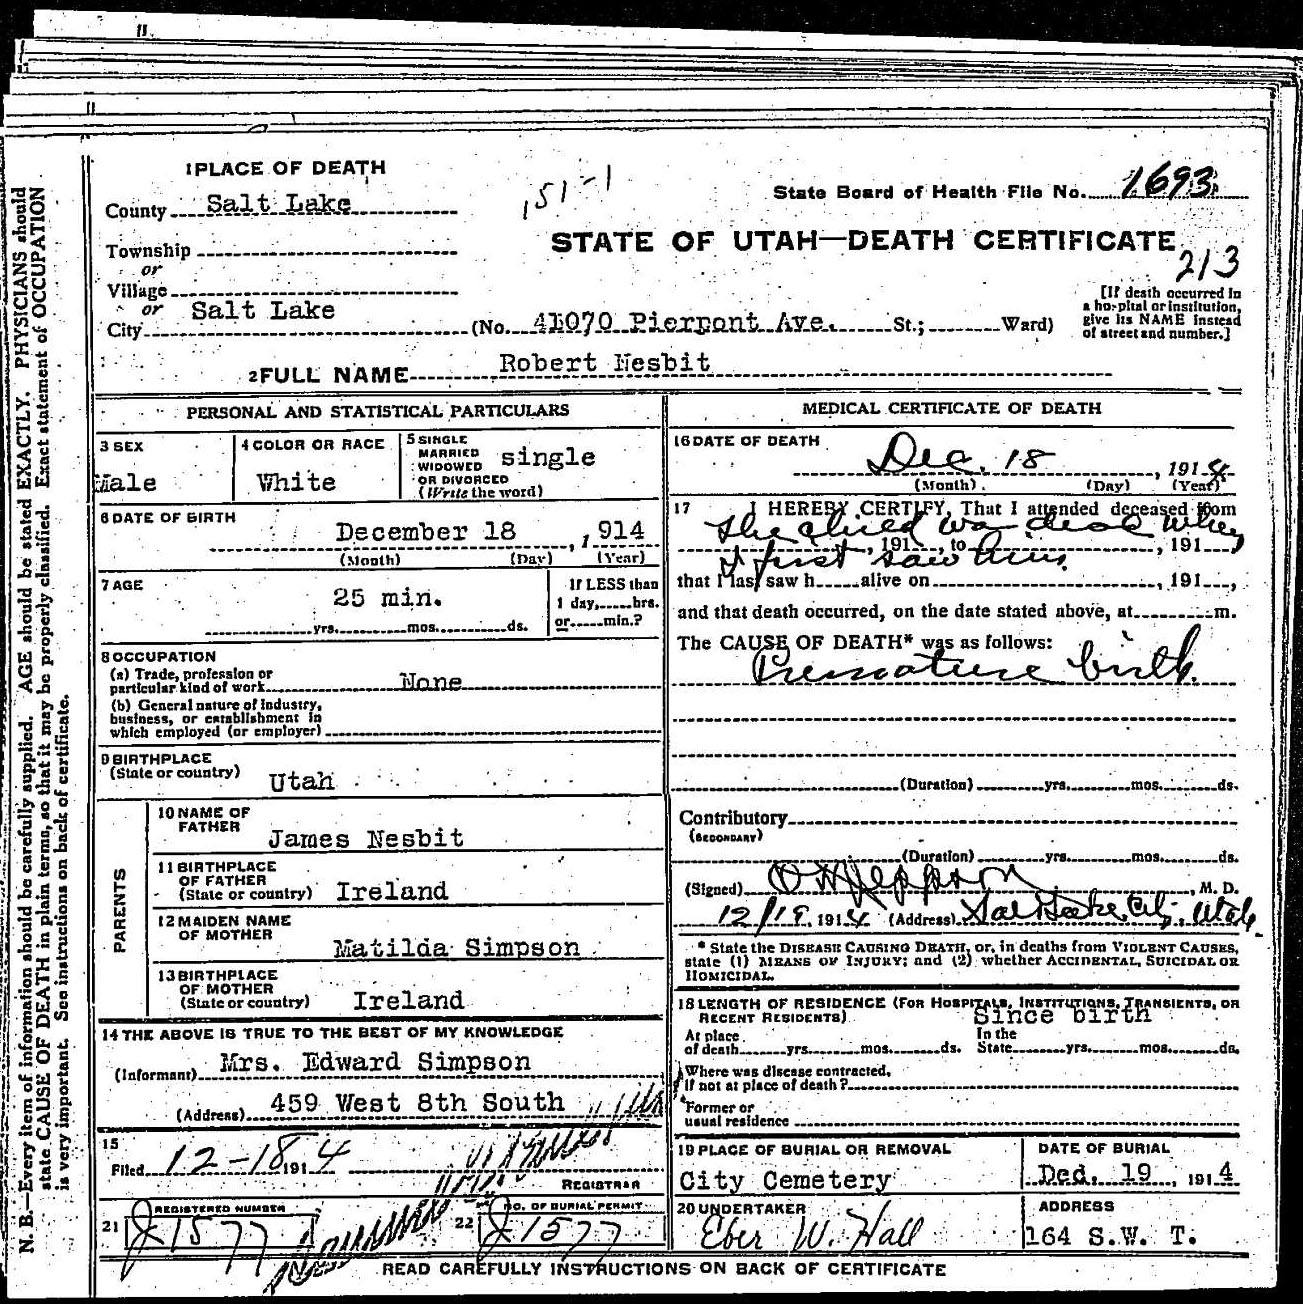 1 PLACE OF DEATH
County Salt Lake
151-1
State Board of Health File No. 1693
STATE OF UTAH—DEATH CERTIFICATE
213
Township
or
Village
or
City Salt Lake (No. 41070 Pierpont Ave. St.; Ward)
[If death occurred in a hospital or institution, give its NAME instead of street and number.]
2 FULL NAME Robert Nesbit
PERSONAL AND STATISTICAL PARTICULARS
3 SEX
Male
4 COLOR OR RACE
White
5 SINGLE
MARRIED
WIDOWED
OR DIVORCED
(Write the word)
single
6 DATE OF BIRTH
December 18, 1914
(Month) (Day) (Year)
7 AGE
25 min.
yrs. mos. ds.
If LESS than
1 day, hrs.
or min.?
8 OCCUPATION
(a) Trade, profession or
particular kind of work None
(b) General nature of industry,
business, or establishment in
which employed (or employer)
9 BIRTHPLACE
(State or country) Utah
PARENTS
10 NAME OF
FATHER
James Nesbit
11 BIRTHPLACE
OF FATHER
(State or country) Ireland
12 MAIDEN NAME
OF MOTHER
Matilda Simpson
13 BIRTHPLACE
OF MOTHER
(State or country) Ireland
14 THE ABOVE IS TRUE TO THE BEST OF MY KNOWLEDGE
(Informant) Mrs. Edward Simpson
(Address) 459 West 8th South
15
Filed 12-18 1914
REGISTRAR
21 REGISTERED NUMBER
J 1577
22 NO. OF BURIAL PERMIT
J 1577
MEDICAL CERTIFICATE OF DEATH
16 DATE OF DEATH
Dec. 18, 1914
(Month) (Day) (Year)
17 I HEREBY CERTIFY, That I attended deceased from
The child was dead when
, 191 , to , 191 ,
I first saw him.
that I last saw h alive on , 191 ,
and that death occurred, on the date stated above, at m.
The CAUSE OF DEATH* was as follows:
Premature birth.
(Duration) yrs. mos. ds.
Contributory
(SECONDARY)
(Duration) yrs. mos. ds.
(Signed) , M. D.
12/19 1914 (Address) Salt Lake City, Utah
* State the DISEASE CAUSING DEATH, or, in deaths from VIOLENT CAUSES,
state (1) MEANS OF INJURY; and (2) whether ACCIDENTAL, SUICIDAL OR
HOMICIDAL.
18 LENGTH OF RESIDENCE (FOR HOSPITALS, INSTITUTIONS, TRANSIENTS, OR
RECENT RESIDENTS) Since birth
At place In the
of death yrs. mos. ds. State yrs. mos. ds.
Where was disease contracted,
if not at place of death?
Former or
usual residence
19 PLACE OF BURIAL OR REMOVAL
City Cemetery
DATE OF BURIAL
Ded. 19, 1914
20 UNDERTAKER
Eber W. Hall
ADDRESS
164 S.W. T.
READ CAREFULLY INSTRUCTIONS ON BACK OF CERTIFICATE
N. B.—Every item of information should be carefully supplied. AGE should be stated EXACTLY. PHYSICIANS should
state CAUSE OF DEATH in plain terms, so that it may be properly classified. Exact statement of OCCUPATION
is very important. See instructions on back of certificate.